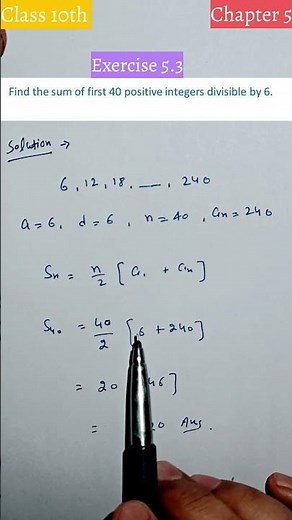 Class 10th
Chapter 5
Exercise 5.3
Find the sum of first 40 positive integers divisible by 6.
Solution →
6, 12, 18, __, 240
a = 6, d = 6, n = 40, an = 240
Sn = n/2 [a1 + an]
S40 = 40/2 [6 + 240]
= 20 46]
= 20 Ans.